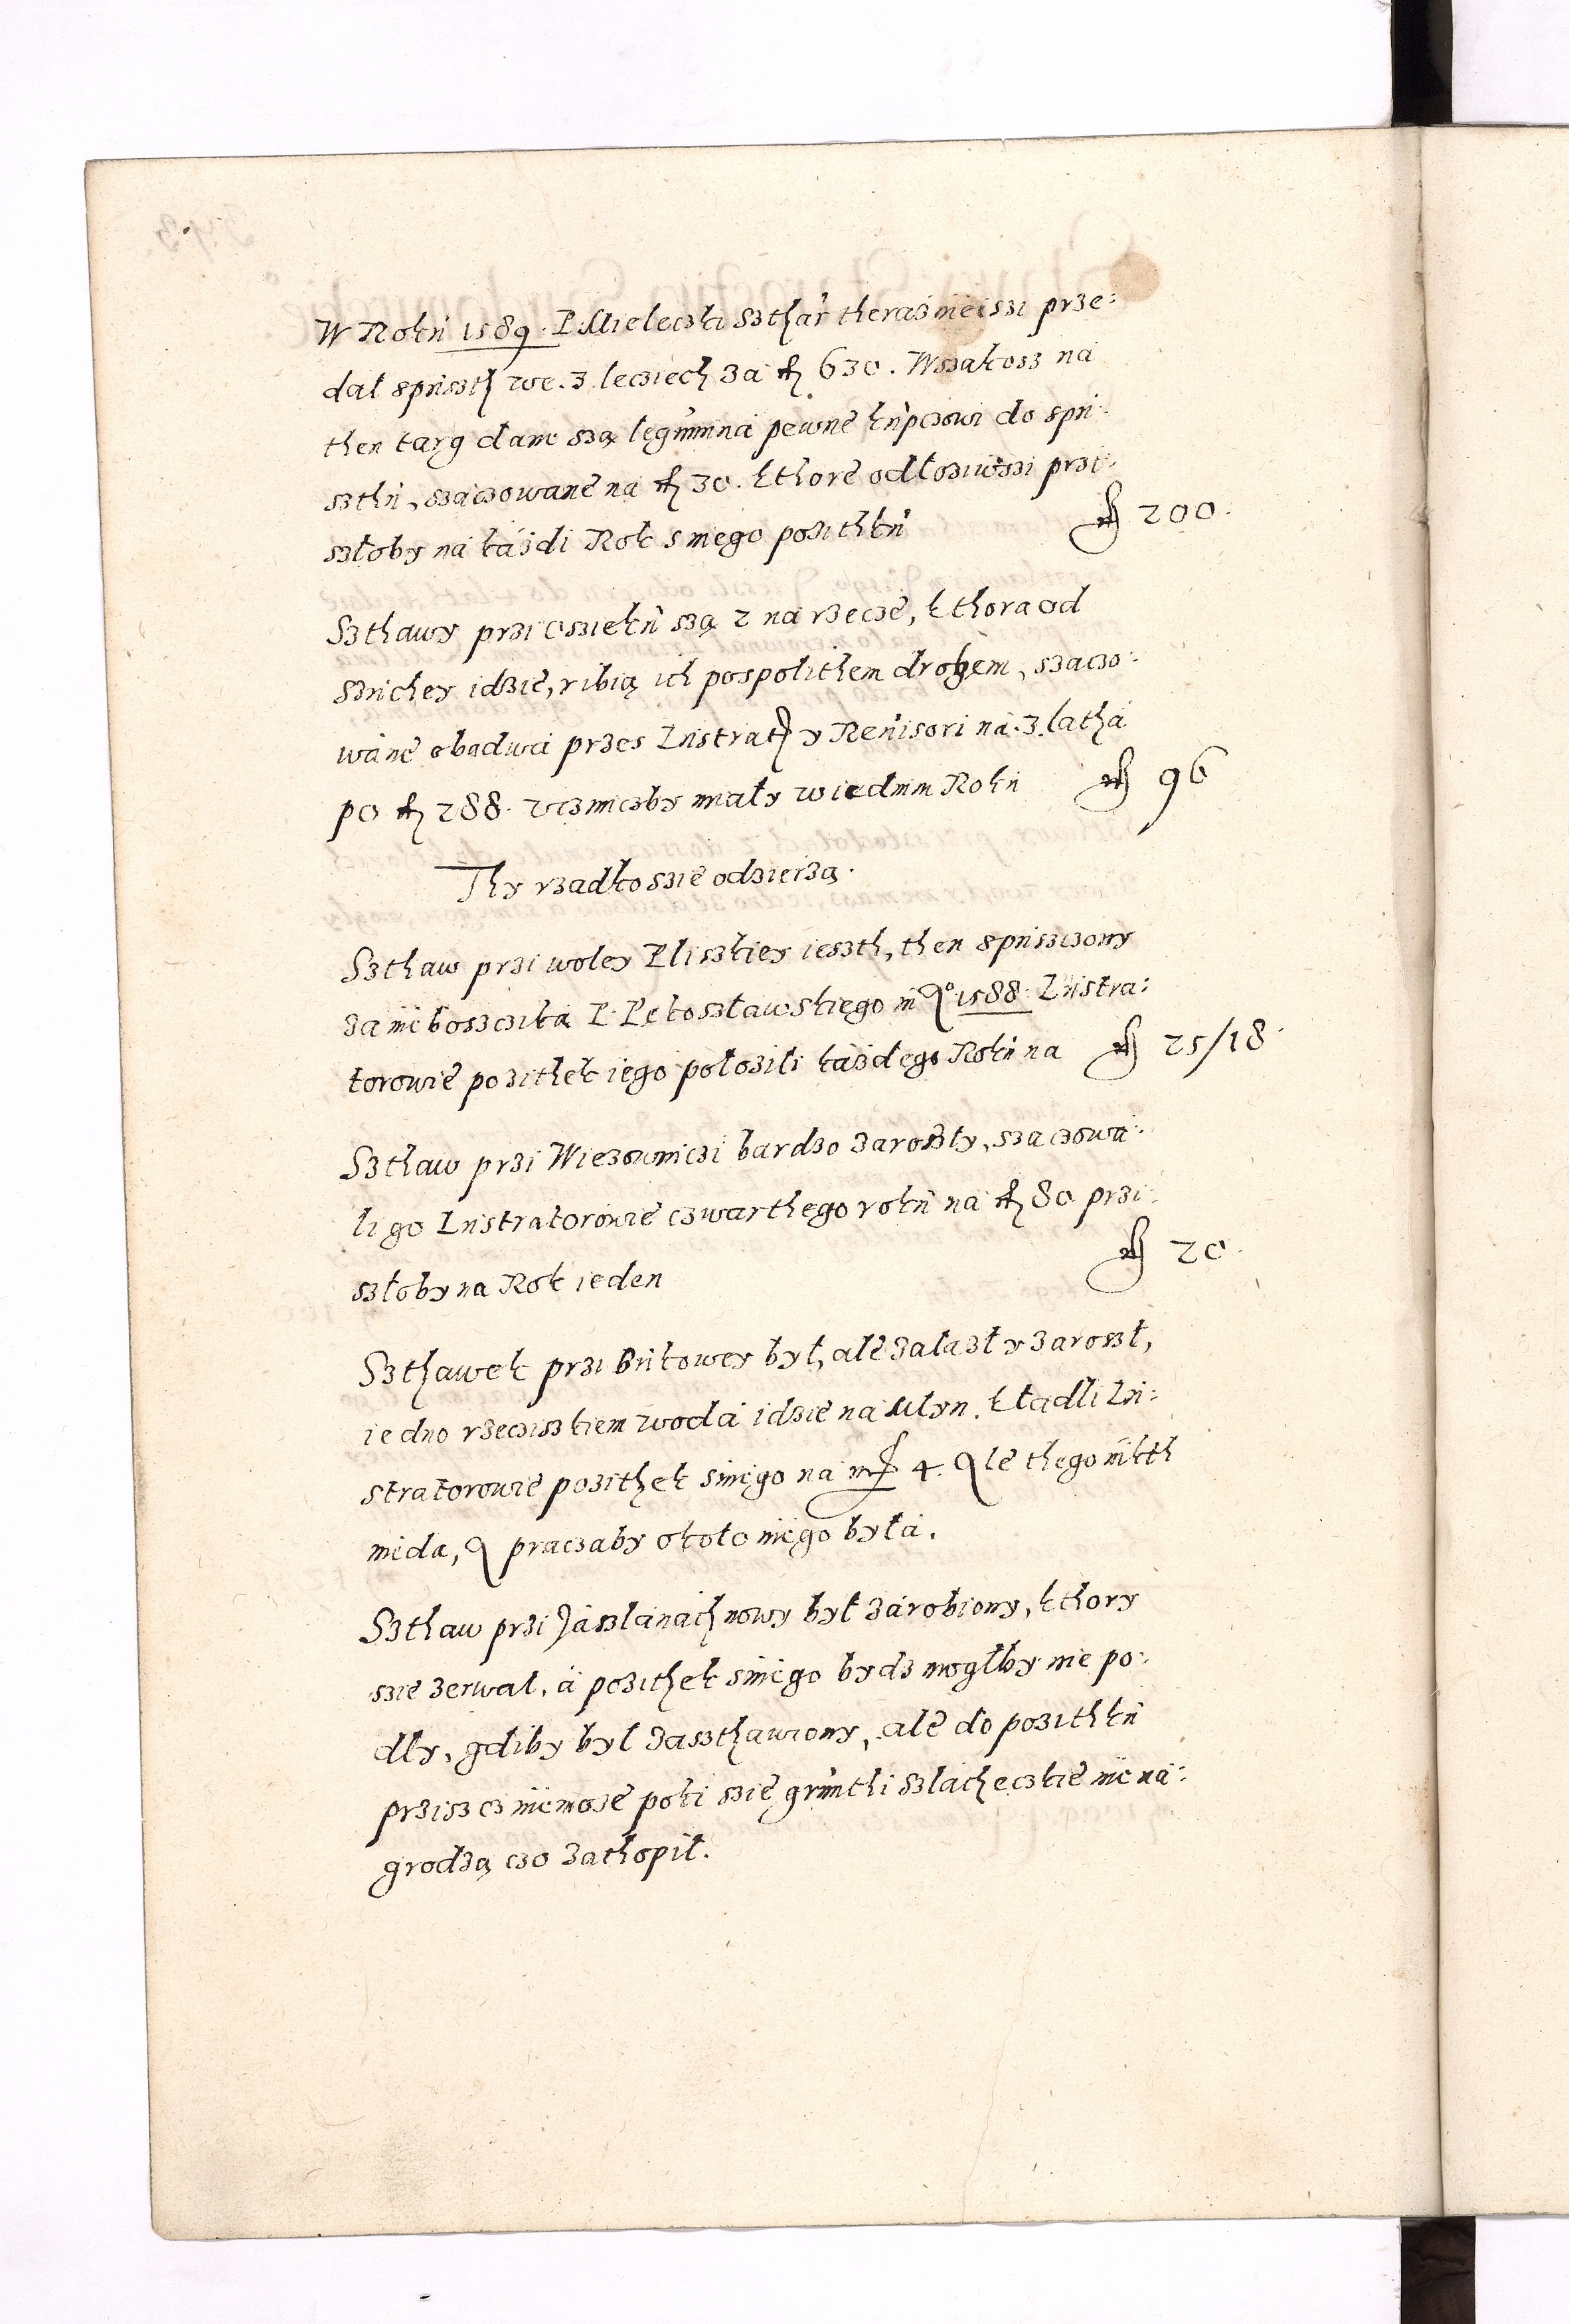 W Roku 1589. P. Mieleczki Szthar: theraznieiszi prze:
dał spuszth we. 3. lecziech za fl 630. Wszakosz na
then targ dane szą legumina pewne kupczowi do spu:
szthu, szaczowane na fl 30. kthore odłoziwszi przi:
szłoby na kazdi Rok s niego pozithku fl 200.
Szthawy przi Oszieku szą 2 na rzecze, kthora od
Szuchey idzie, ribią ich pospolithem drobem, szaczo:
wane obadwa przes Lustrath y Reuisori na. 3. latha
po fl 288. uczinicby miały w iednim Roku fl 96
Thy rzadko szie odzierzą.
Szthaw przi woley Pliszkiey ieszth, then spuszczony
za niebosczika P. Pękoszławskiego in Aº 1588. Lustra:
torowie pozithek iego położili kazdego Roku na fl 25/18
Szthaw przi Wiezowniczi bardzo zarosły, szaczowa:
li go Lustratorowie czwarthego roku na fl 80 przi:
szłoby na Rok ieden fl 20.
Szthawek przi Bukowey był, ale zalazł y zaroszł,
iedno rzecziszkiem woda idzie na Młyn. Kładli Lu:
stratorowie pozithek s niego na mrc 4. Ale thego nikth
nieda, A praczaby około niego była.
Szthaw przi Jaszlanach nowy był zarobiony, kthory
szie zerwał, a pozithek s niego bydz mogłby nie po:
dły, gdiby był zaszthawiony, ale do pozithku
przisc niemoze poki szię grunthi szlacheczkie nie na:
grodzą czo zathopił.